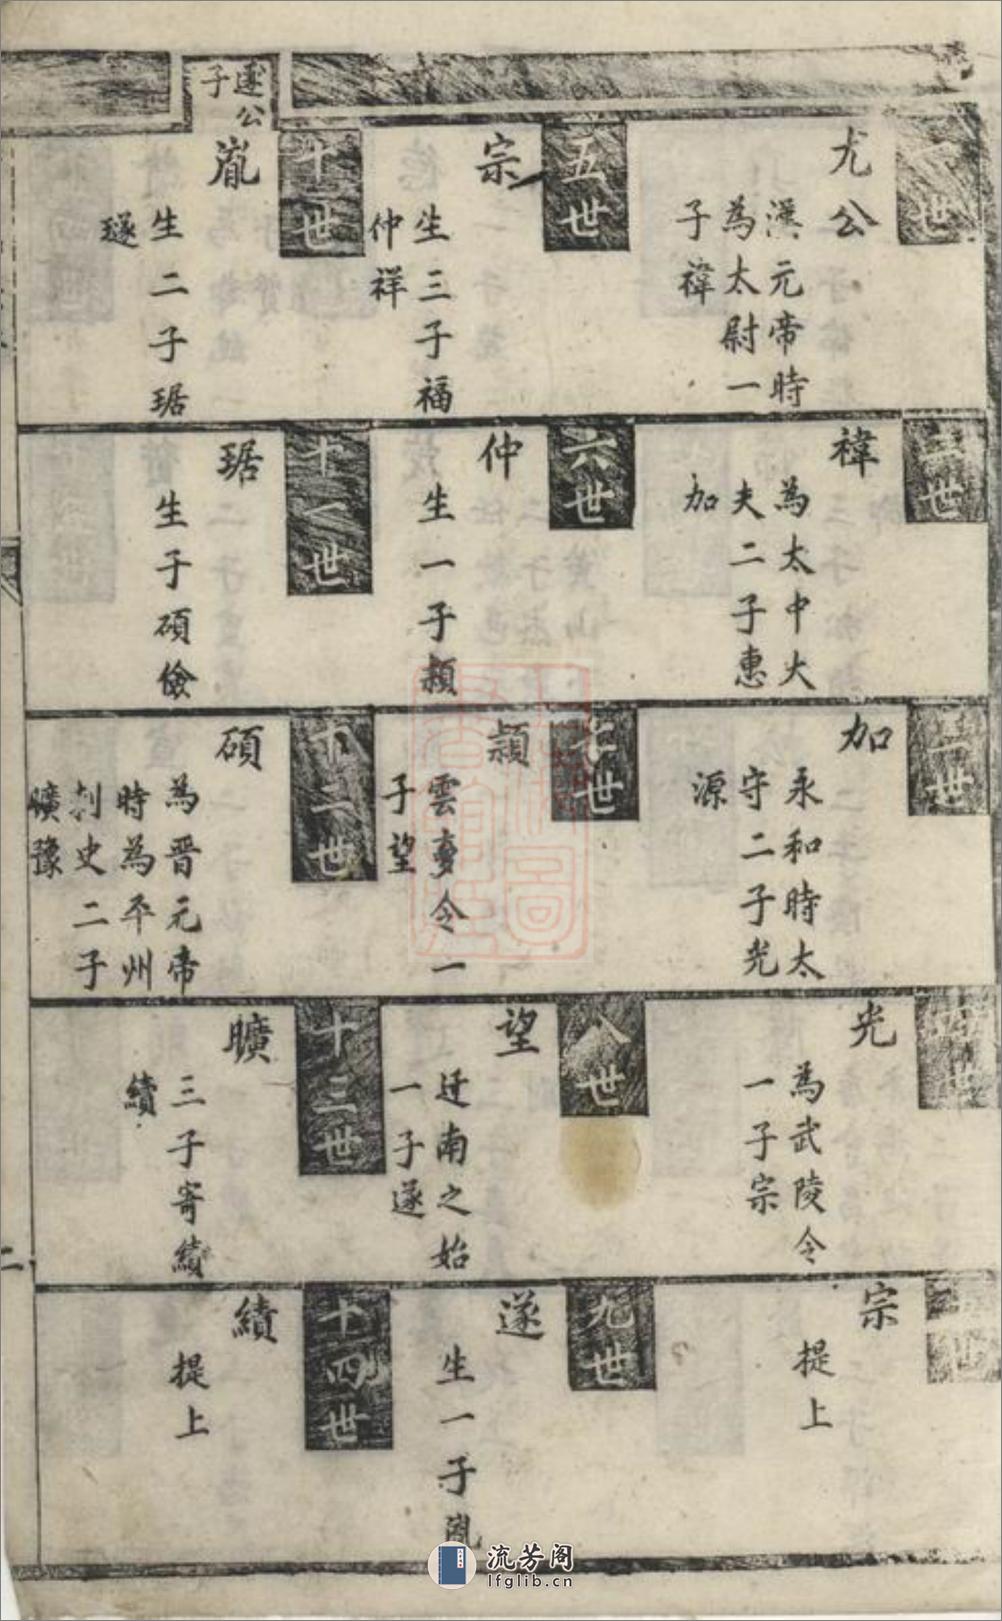 一世
尤公
漢元帝時
為太尉一
子禕
二世
禕
為太中大
夫二子惠
加
三世
加
永和時太
守二子光
源
四世
光
為武陵令
一子宗
五世
宗
提上
五世
宗
生三子福
仲祥
六世
仲
生一子潁
七世
潁
雲夢令一
子望
八世
望
迁南之始
一子遂
九世
遂
生一子胤
遂公
子
十世
胤
生二子琚
璲
十一世
琚
生子碩儉
十二世
碩
為晋元帝
時為平州
刾史二子
曠豫
十三世
曠
三子寄績
續
十四世
績
提上
二
流芳阁
lfglib.cn